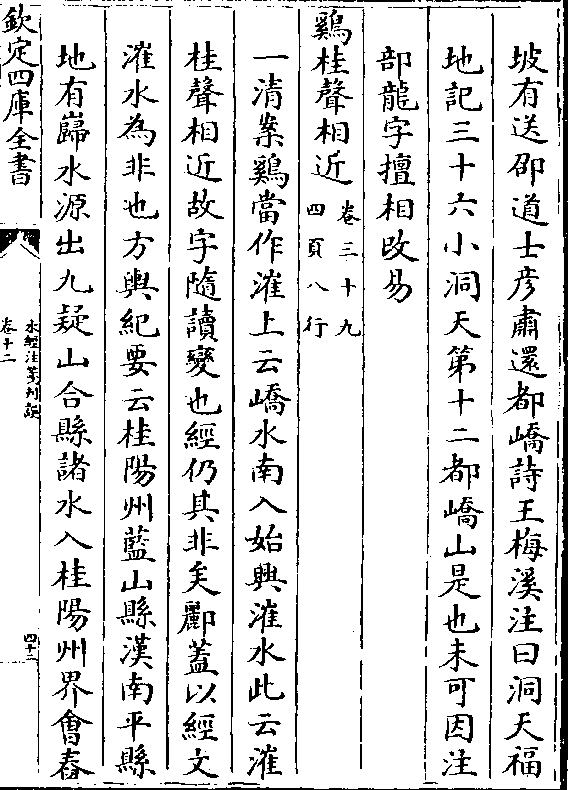 坡有送邵道士彦肅還都嶠詩王梅溪注曰洞天福
地記三十六小洞天第十二都嶠山是也未可因注
部龍字擅相改易
鷄桂聲相近卷三十九
四頁八行
一清案鷄當作漼上云嶠水南入始興漼水此云漼
桂聲相近故字隨讀變也經仍其非矣酈蓋以經文
漼水為非也方輿紀要云桂陽州藍山縣漢南平縣
地有巋水源出九疑山合縣諸水入桂陽州界會舂
欽定四庫全書
水經注箋刊誤
卷十二
四十二